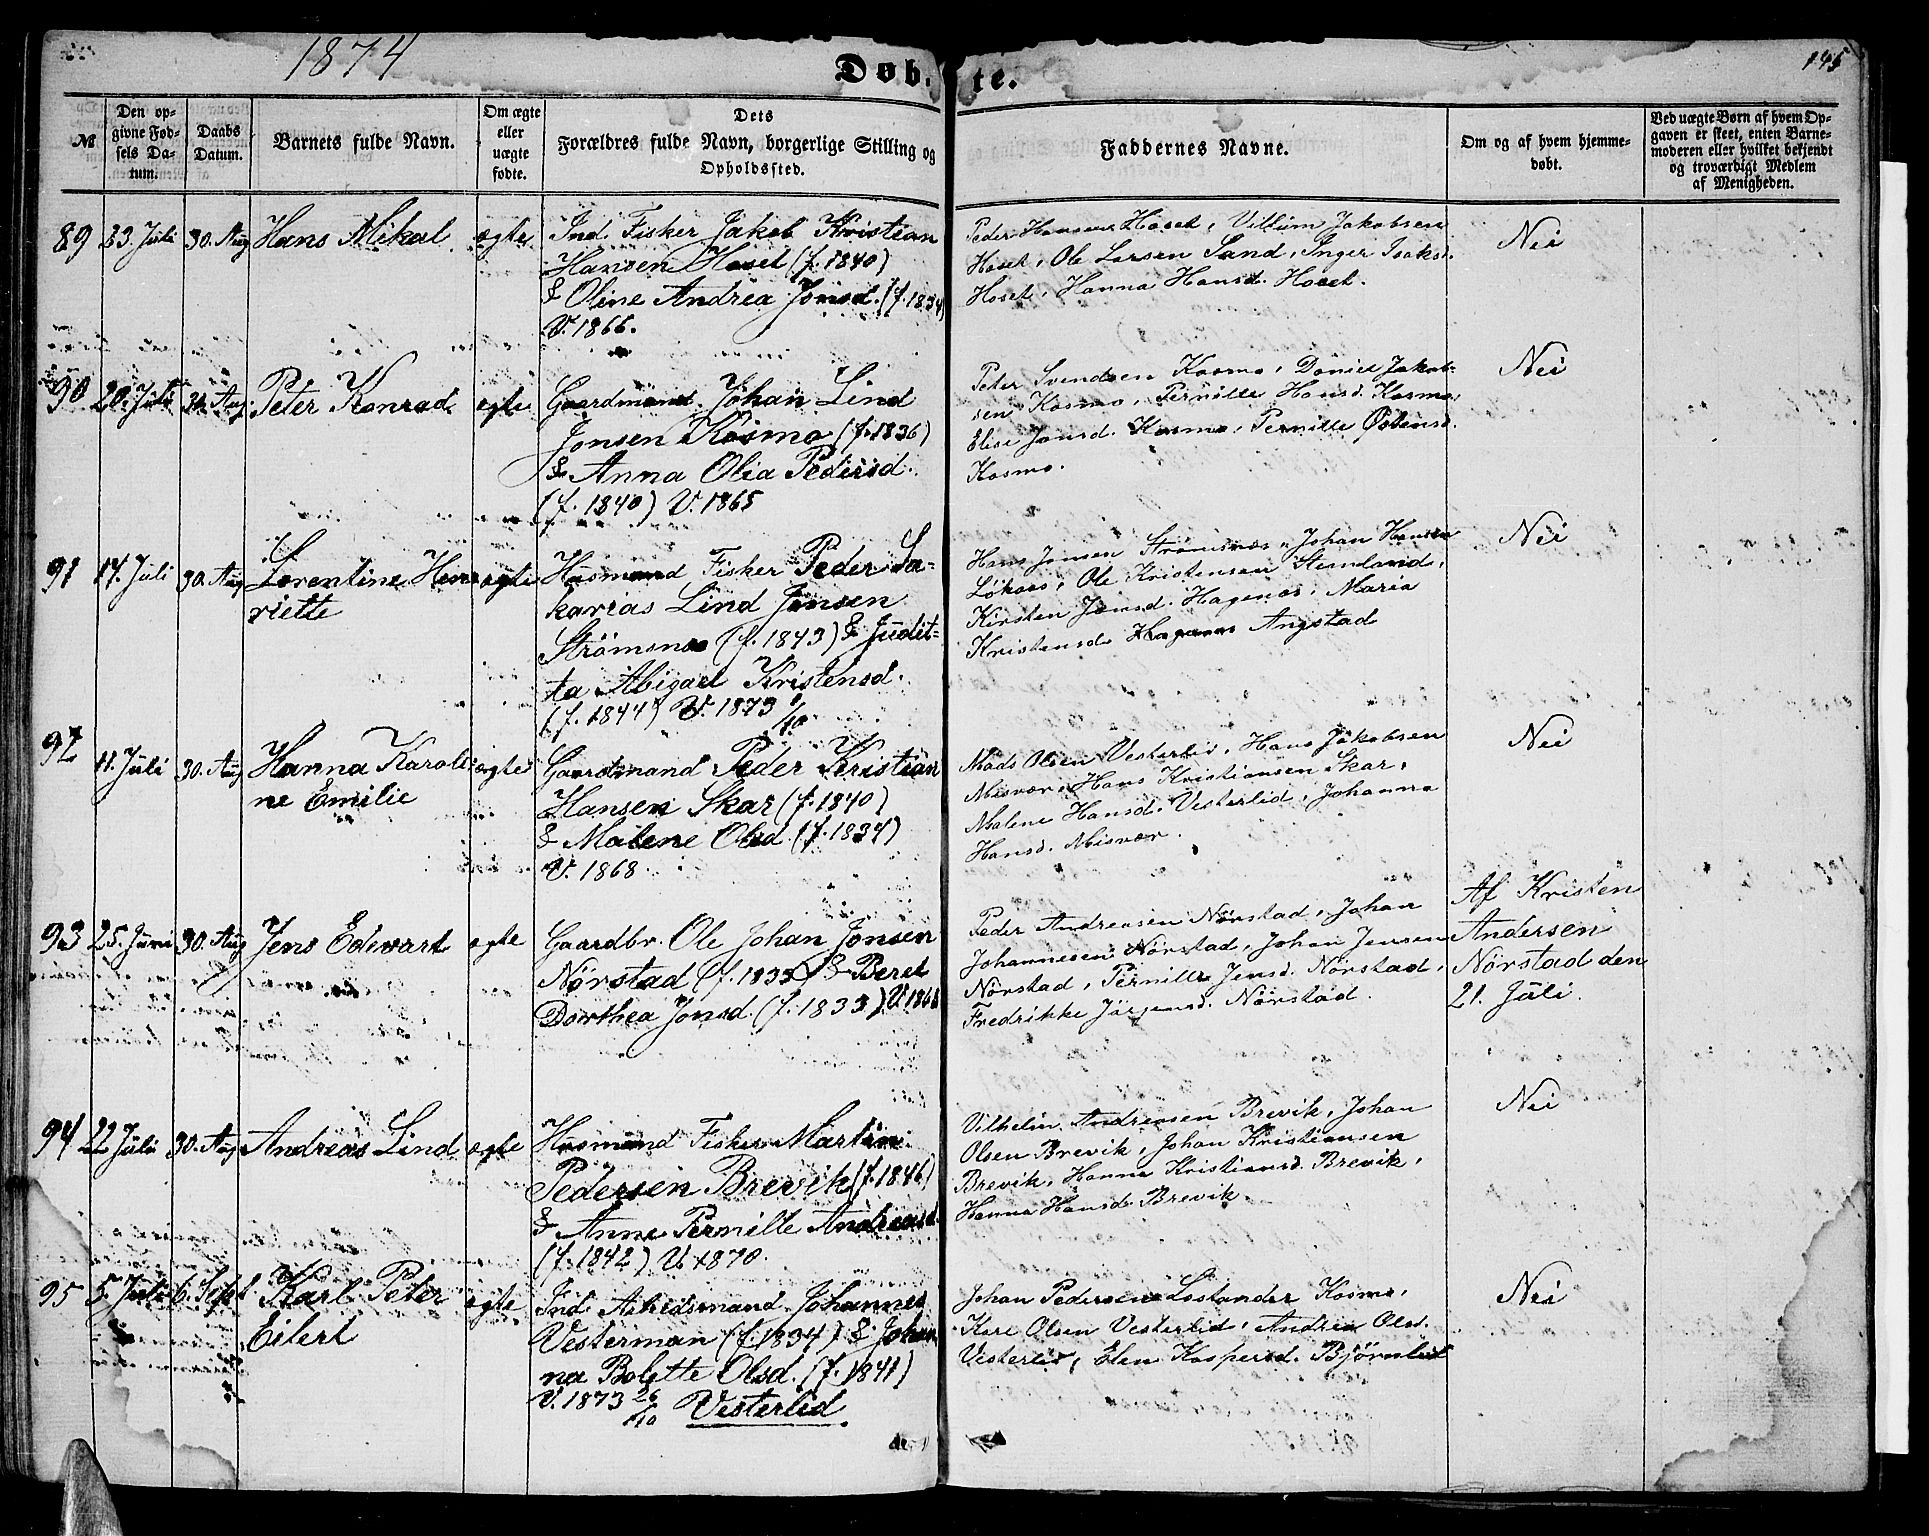 1874
Døb-te.
145
№
Den op-
givne Fød-
sels Da-
tum.
Daabs
Datum.
Barnets fulde Navn.
Om ægte
eller
uægte
fødte.
Dets
Forældres fulde Navn, borgerlige Stilling og
Opholdssted.
Faddernes Navne.
Om og af hvem hjemme-
døbt.
Ved uægte Børn af hvem Op-
gaven er skeet, enten Barne-
moderen eller hvilket bekjendt
og troværdigt Medlem
af Menigheden.
89 23. Juli 30. Aug Hans Mikal ægte
Ind. Fisker Jakob Kristian
Hansen Hoset (f. 1840)
& Oline Andrea Jonsd. (f. 1834)
V. 1866.
Peder Hansen Hoset, Villum Jakobsen
Hoset, Ole Larsen Sand, Inger Isaksd.
Hoset, Hanna Hansd. Hoset.
Nei
90 20. Juli 30. Aug. Peter Konrad ægte
Gaardmand Johan Lind
Jonsen Kosmo (f. 1836)
& Anna Olia Pedersd.
(f. 1840) V. 1865
Peter Svendsen Kosmo, Daniel Jakob-
sen Kosmo, Pernille Hansd. Kosmo,
Elise Jonsd. Kosmo, Pernille Østensd.
Kosmo.
Nei
91 17. Juli 30. Aug Lorentine Hen- ægte
riette
Husmand Fisker Peder Sa-
karias Lind Jensen
Strømsnes (f. 1843) & Judit-
ta Abigael Kristensd.
(f. 1844) V. 1873 /10
Hans Jensen Strømsnes, Johan Hansen
Løkaas, Ole Kristensen Stemland,
Kirsten Jonsd. Hagenes, Maria
Kristensd. Hagenes Angstad
Nei
92 11. Juli 30. Aug Hanna Karoli- ægte
ne Emilie
Gaardmand Peder Kristian
Hansen Skar (f. 1840)
& Malene Olsd. (f. 1834)
V. 1868.
Mads Olsen Vesterlid, Hans Jakobsen
Misvær, Hans Kristiansen Skar,
Malene Hansd. Vesterlid, Johanna
Hansd. Misvær.
Nei
93 25. Juni 30. Aug Jens Edevart ægte
Gaardbr. Ole Johan Jonsen
Nørstad (f. 1835) & Beret
Dorthea Jonsd. (f. 1833) V. 1868
Peder Andreasen Nørstad, Johan
Johannesen Nørstad, Johan Jensen
Nørstad, Pernille Jensd. Nørstad,
Fredrikke Jørgensd. Nørstad.
Af Kristen
Andersen
Nørstad den
21. Juli.
94 22 Juli 30. Aug Andreas Lind ægte
Husmand Fisker Martin
Pedersen Brevik (f. 1846)
& Anne Pernille Andreasd.
(f. 1842) V. 1870.
Vilhelm Andreasen Brevik, Johan
Olsen Brevik, Johan Kristiansen
Brevik, Hanna Kristiansd. Brevik,
Hanna Hansd. Brevik.
Nei
95 5. Juli 6. Sept. Karl Peter ægte
Eilert
Ind. Arbeidsmand Johannes
Vesterman (f. 1834) & Johan-
na Bolette Olsd. (f. 1841)
V. 1873 26/10 Vesterlid
Johan Pedersen Kosmo,
Kare Olsen Vesterlid, Andrea Olsd.
Vesterlid, Elen Kaspersd. Bjørnlid
Nei